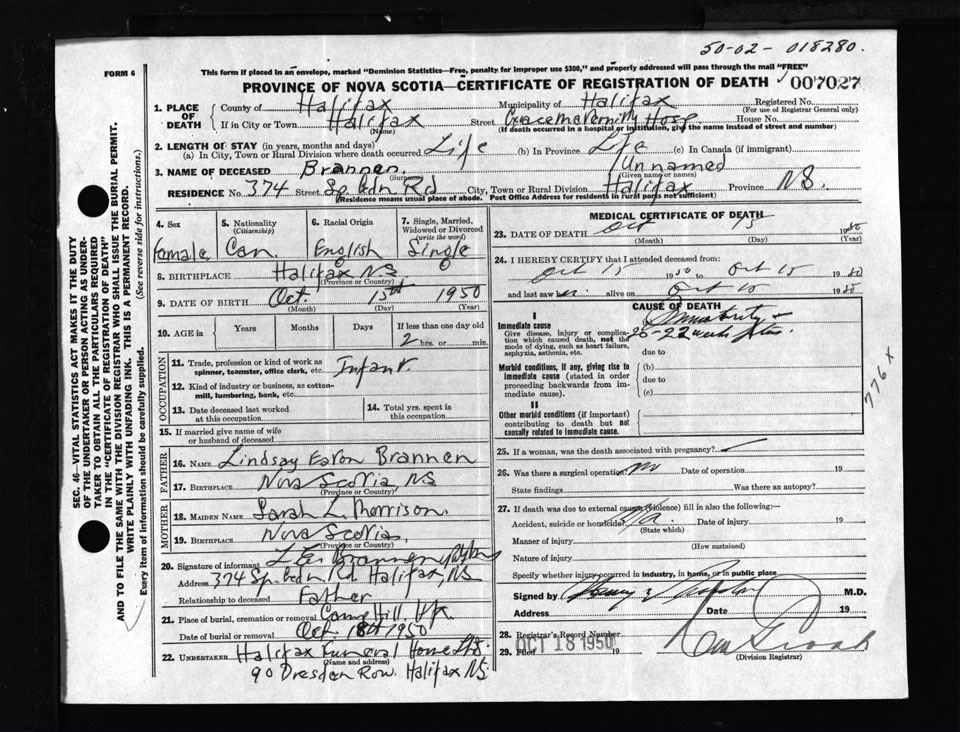 50-02- 018280.
FORM 6
This form if placed in an envelope, marked "Dominion Statistics—Free, penalty for improper use $300," and properly addressed will pass through the mail "FREE"
PROVINCE OF NOVA SCOTIA—CERTIFICATE OF REGISTRATION OF DEATH 007027
SEC. 46—VITAL STATISTICS ACT MAKES IT THE DUTY
OF THE UNDERTAKER OR PERSON ACTING AS UNDER-
TAKER TO OBTAIN ALL THE PARTICULARS REQUIRED
IN THE "CERTIFICATE OF REGISTRATION OF DEATH"
AND TO FILE THE SAME WITH THE DIVISION REGISTRAR WHO SHALL ISSUE THE BURIAL PERMIT.
WRITE PLAINLY WITH UNFADING INK. THIS IS A PERMANENT RECORD.
Every item of information should be carefully supplied. (See reverse side for instructions.)
1. PLACE OF DEATH County of Halifax Municipality of Halifax Registered No.
(For use of Registrar General only)
If in City or Town Halifax Street Grace Maternity Hosp House No.
(Name) (If death occurred in a hospital or institution, give the name instead of street and number)
2. LENGTH OF STAY (in years, months and days)
(a) In City, Town or Rural Division where death occurred Life (b) In Province Life (c) In Canada (if immigrant)
3. NAME OF DECEASED Brannen (Unnamed
(Surname) (Given name or names)
RESIDENCE No. 374 Street Rd City, Town or Rural Division Halifax Province NS.
(Residence means usual place of abode. Post Office Address for residents in rural parts not sufficient)
4. Sex 5. Nationality (Citizenship) 6. Racial Origin 7. Single, Married, Widowed or Divorced (write the word)
female Can. English Single
8. BIRTHPLACE Halifax NS.
(Province or Country)
9. DATE OF BIRTH Oct. 15th 1950
(Month) (Day) (Year)
10. AGE in Years Months Days If less than one day old
2 hrs. or min.
OCCUPATION
11. Trade, profession or kind of work as spinner, teamster, office clerk, etc. Infant.
12. Kind of industry or business, as cotton-mill, lumbering, bank, etc.
13. Date deceased last worked at this occupation
14. Total yrs. spent in this occupation
15. If married give name of wife or husband of deceased
FATHER
16. NAME Lindsay Eaton Brannen
17. BIRTHPLACE Nova Scotia, NS
(Province or Country)
MOTHER
18. MAIDEN NAME Sarah L. Morrison.
19. BIRTHPLACE Nova Scotia,
(Province or Country)
20. Signature of informant L E Brannen
Address 374 Rd Halifax, NS
Relationship to deceased Father
21. Place of burial, cremation or removal Camp Hill.
Date of burial or removal Oct. 18th 1950
22. UNDERTAKER Halifax Funeral Home Ltd.
(Name and address)
90 Dresden Row. Halifax NS
MEDICAL CERTIFICATE OF DEATH
23. DATE OF DEATH Oct 15 1950
(Month) (Day) (Year)
24. I HEREBY CERTIFY that I attended deceased from:
Oct 15 1950 to Oct 15 1950
and last saw her alive on Oct 15 1950
CAUSE OF DEATH
I
Immediate cause
Give disease, injury or complication which caused death, not the mode of dying, such as heart failure, asphyxia, asthenia, etc.
Immaturity
due to
Morbid conditions, if any, giving rise to immediate cause (stated in order proceeding backwards from immediate cause).
(b)
due to
(c)
II
Other morbid conditions (if important) contributing to death but not causally related to immediate cause.
776 x
25. If a woman, was the death associated with pregnancy?
26. Was there a surgical operation? no Date of operation 19
State findings Was there an autopsy?
27. If death was due to external causes (violence) fill in also the following:—
Accident, suicide or homicide? n/a. Date of injury 19
(State which)
Manner of injury
(How sustained)
Nature of injury
Specify whether injury occurred in industry, in home, or in public place
Signed by M.D.
Address Date 19
28. Registrar's Record Number
29. Filed OCT 18 1950 19
(Division Registrar)